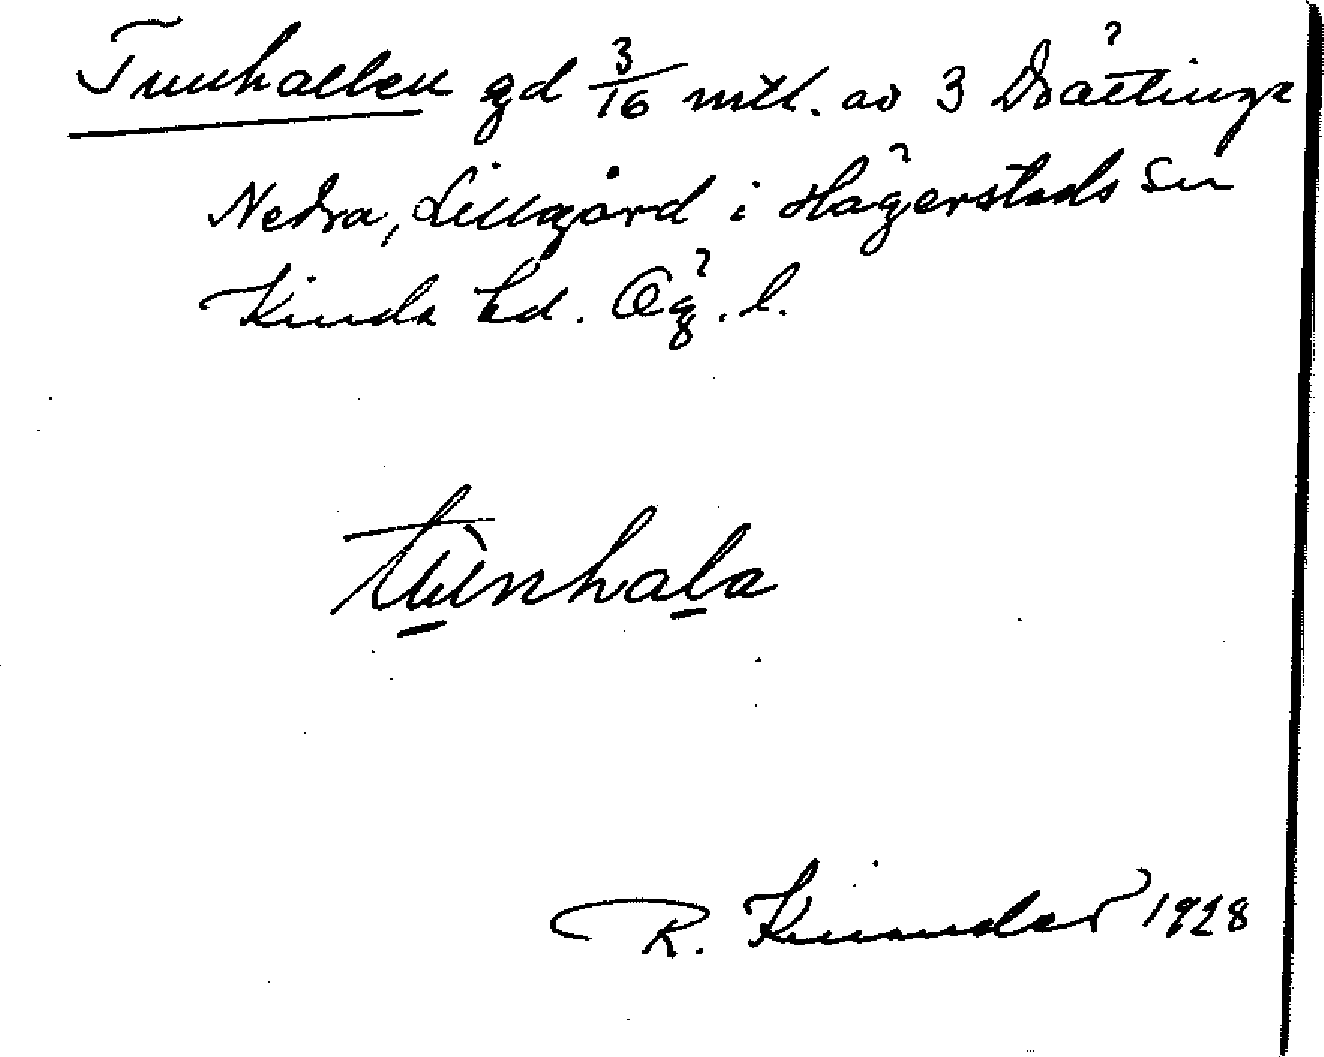 Tunhallen gd 3/16 mtl. av 3 Drättinge
Nedra, Lillgård i Hägerstads sn
Kinda hd. Ög. l.
tùnhala
R. Kinander 1928